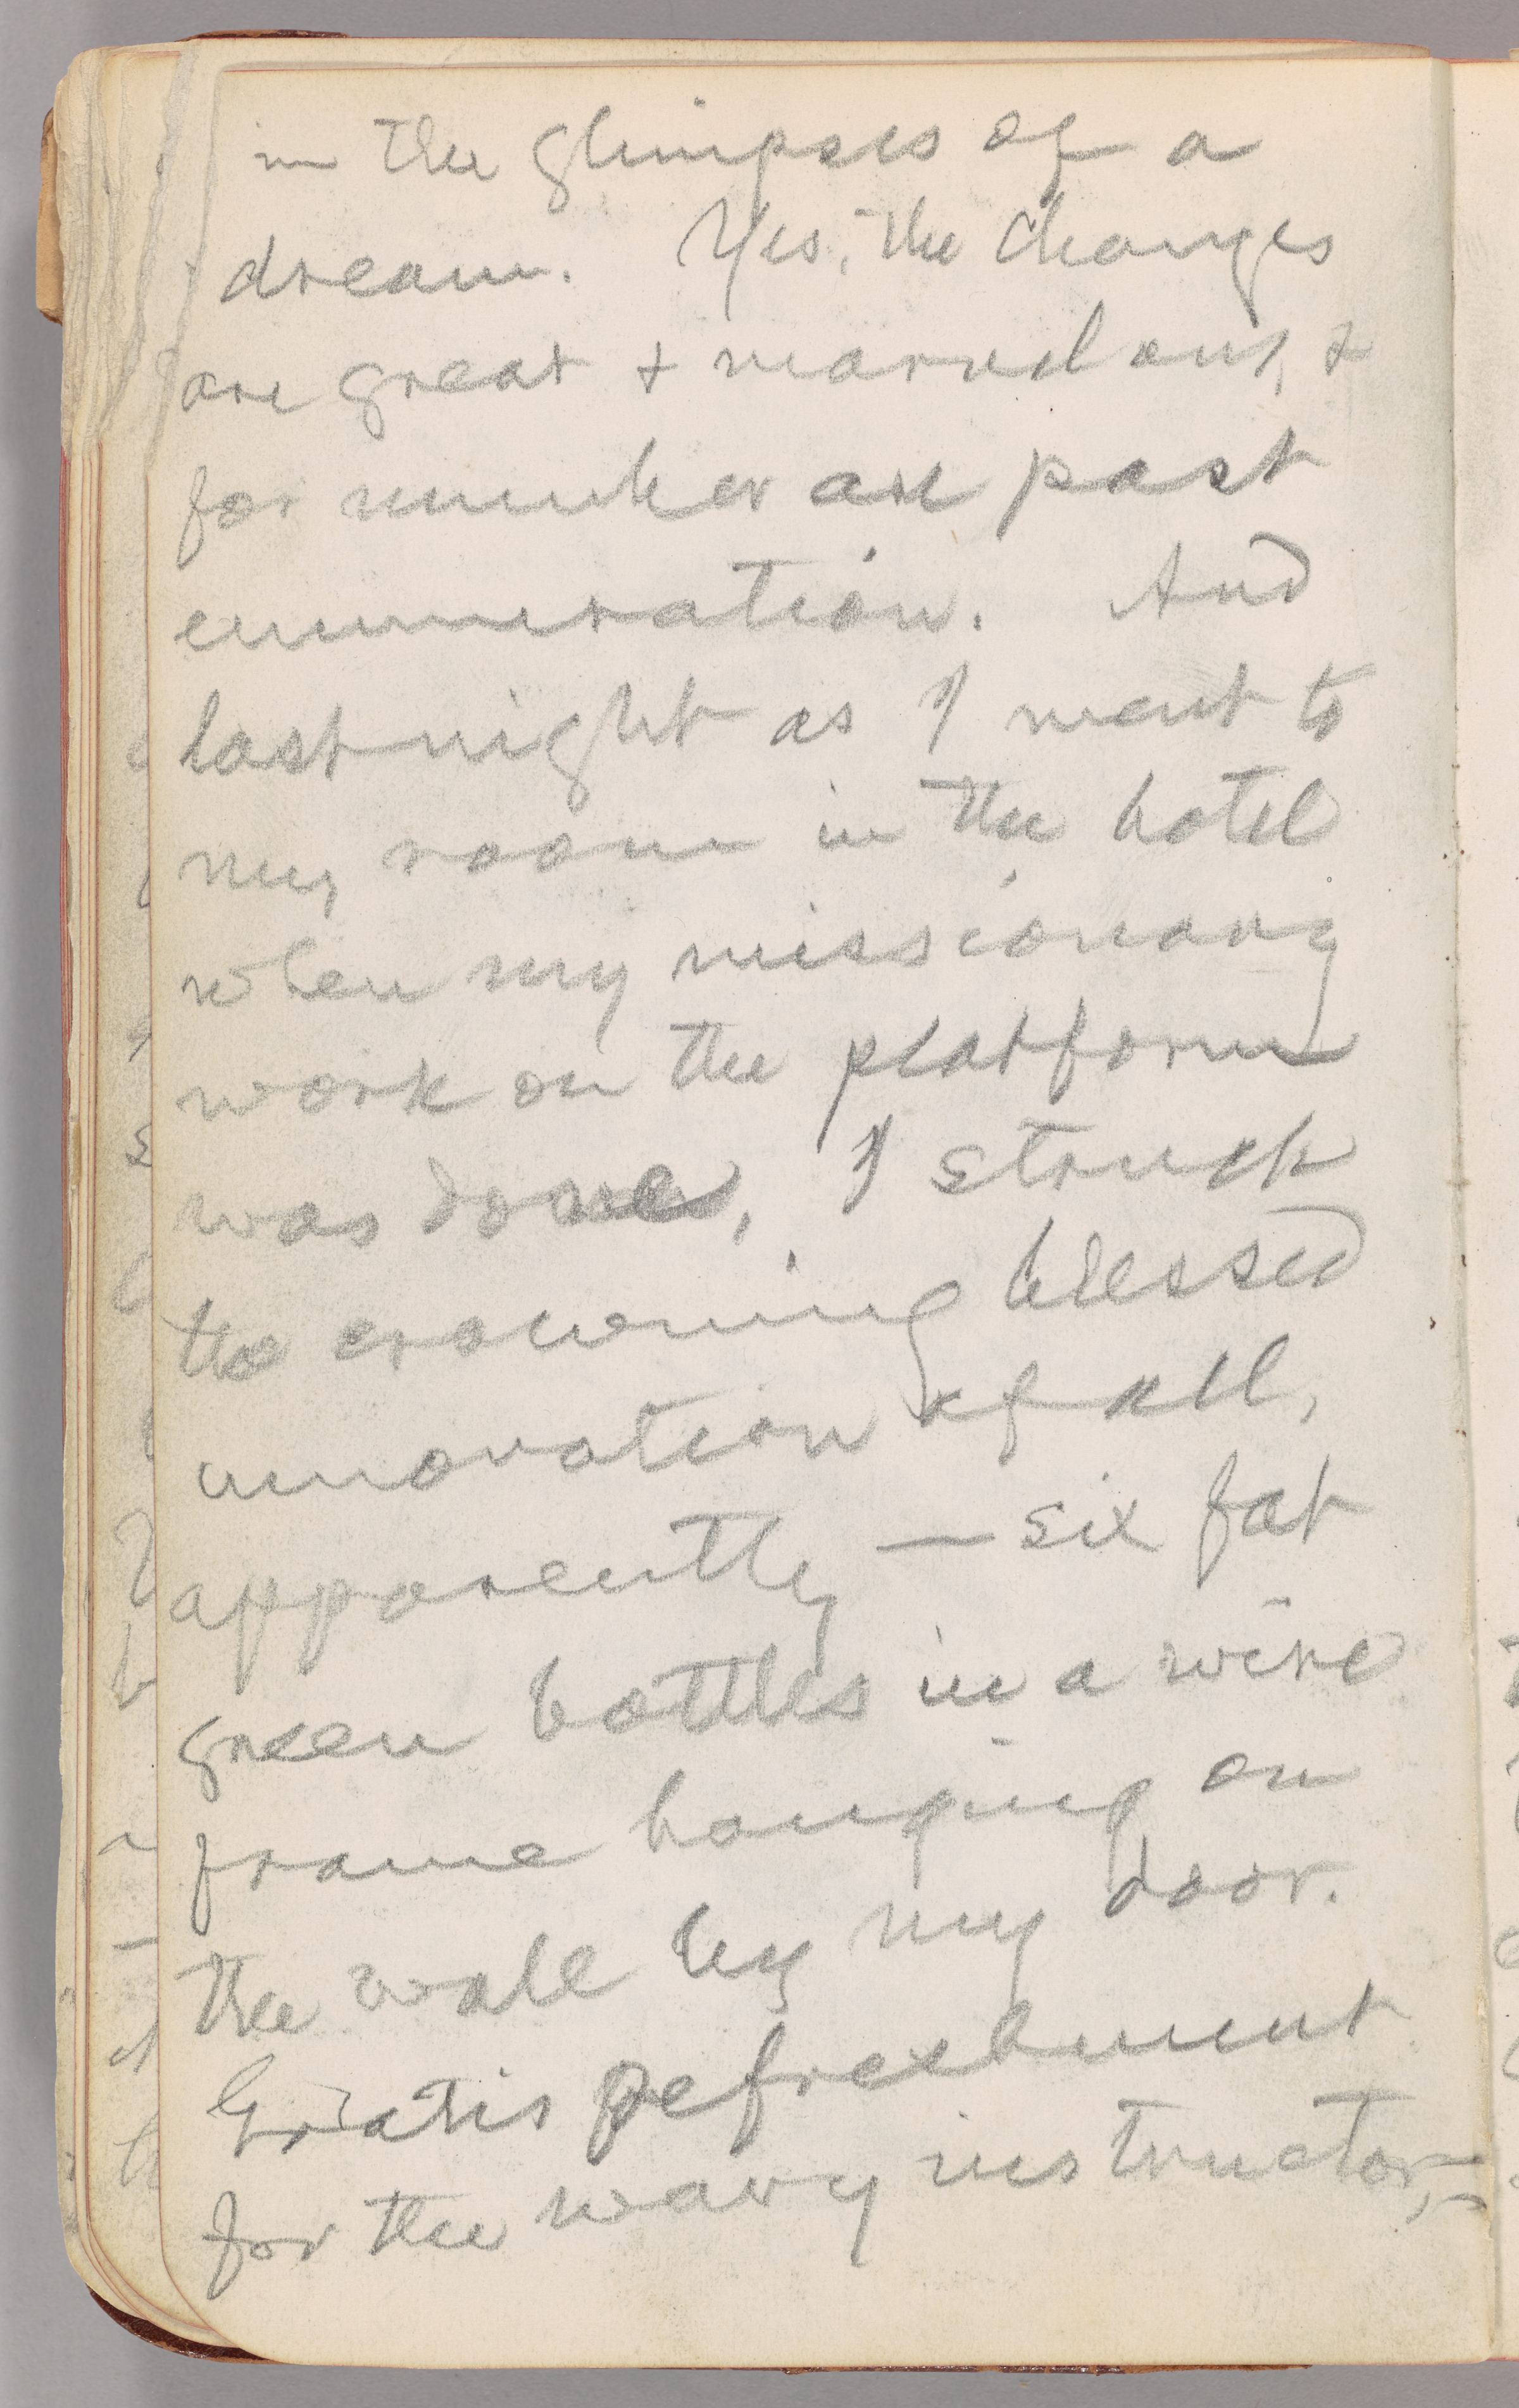 in the glimpses of a
dream. Yes, the changes
are great + marvelous, &
for number are past
enumeration. And
last night as I went to
my room in the hotel
when my missionary
work on the platform
was done, I struck
the crowning blessed
innovation of all,
apparently — six fat
green bottles in a wire
frame hanging on
the wall by my door.
Gratis refreshment
for the weary instructor,—